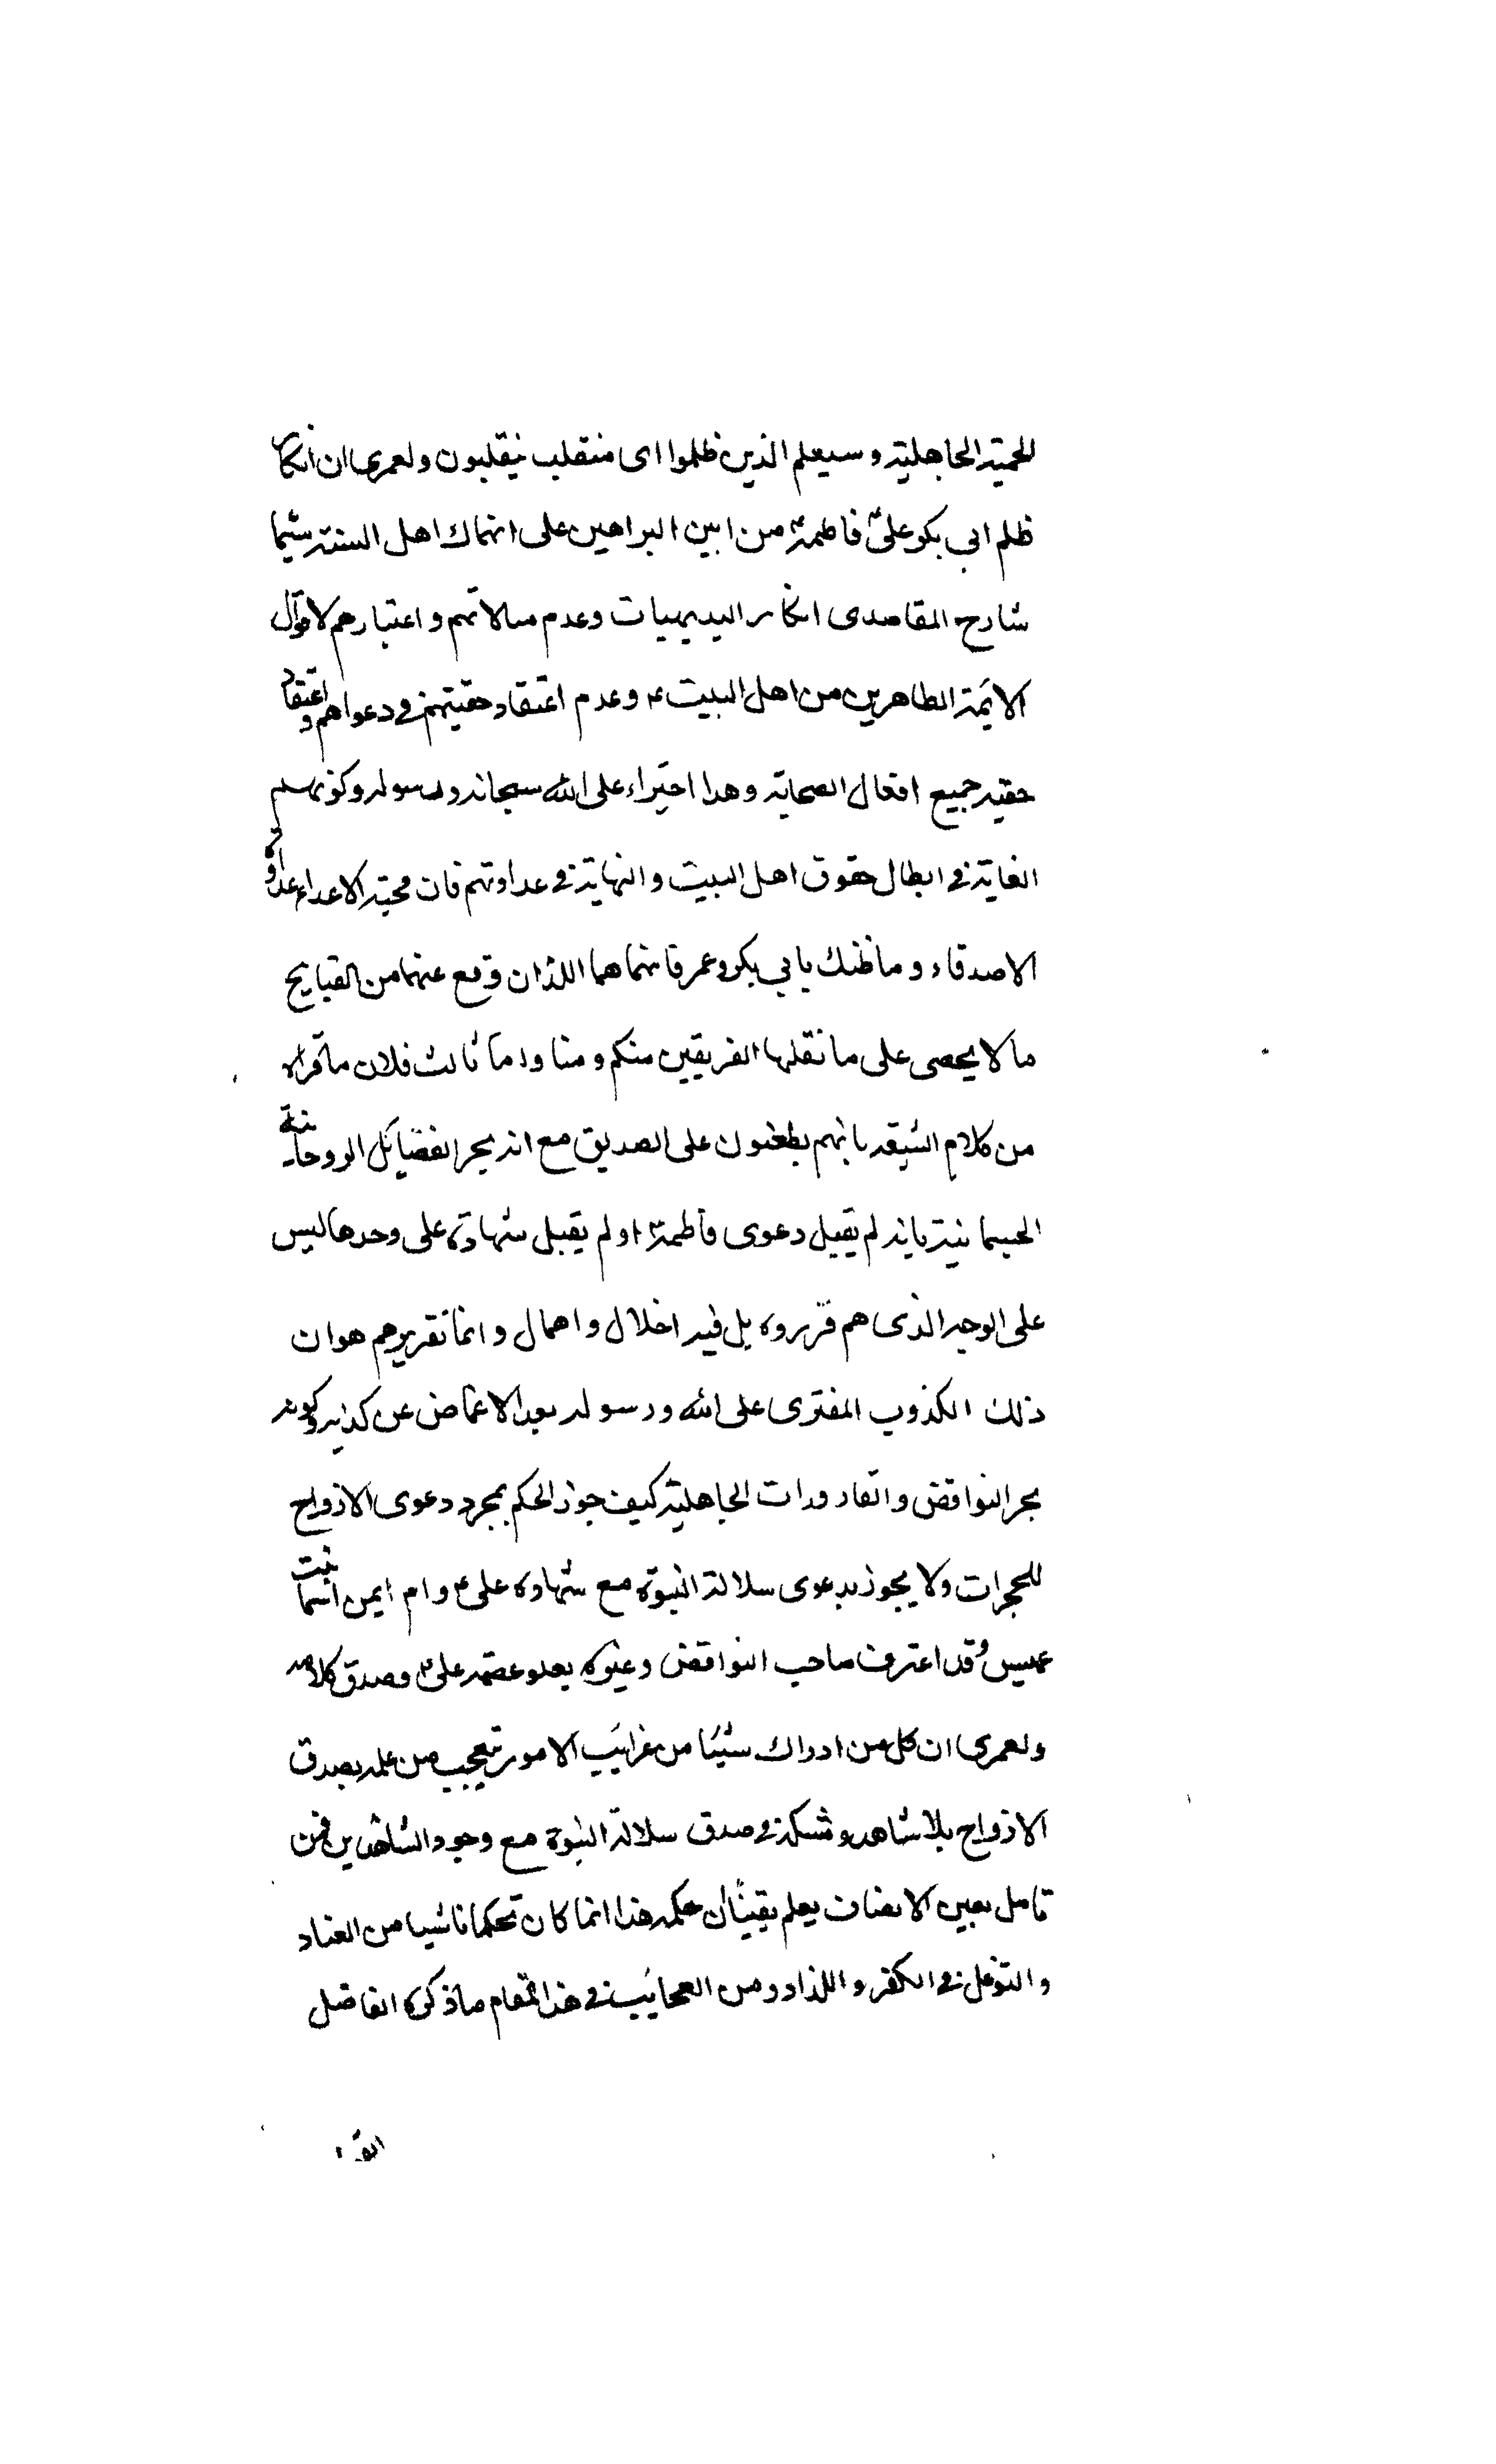 الحمية الجاهلية وسيعلم الذين ظلموا اى منقلب ينقلبون ولعمرى ان انكار
ظلم ابي بكر على فاطمة ع من ابين البراهين على انهماك اهل السنة سيما
شارح المقاصد فى انكار البديهيات وعدم مبالاتهم واعتبارهم لاقوال
الائمة الطاهرين من اهل البيت ع وعدم اعتقاد حقيتهم في دعواهم واعتقاد
حقيه جميع افعال الصحابة وهذا اجتراء على الله سبحانه ورسوله وكونهم
الغاية في ابطال حقوق اهل البيت والنهاية في عداوتهم فان محبة الاعداء عداوة
الاصدقاء وما ظنك بابي بكر وعمر فانهما هما اللذان وقع عنهما من القبايح
ما لا يحصى على ما نقلها الفريقين منكم ومنا واما ثالث فلان ما قرره
من كلام الشيعه بانهم يطعنون على الصديق مع انه بحر الفضائل الروحانية
الجسمانية بانه لم يقبل دعوى فاطمة ع ولم يقبل شهادة على وحدها ليس
على الوجه الذى هم قرروه بل فيه اخلال واهمال وانما تقريرهم هو ان
ذلك الكذوب المفترى على الله ورسوله بعد الاغماض عن كذبه وكونه
بحر النواقض والقادورات الجاهلية كيف جوز الحكم بمجرد دعوى الازواج
للحجرات ولا يجوز بدعوى سلالة النبوة مع شهادة على ع وام ايمن اسما بنت
عميس وقد اعترف صاحب النواقض وغيره بعلو عصمه على ع وصدق كلامه
ولعمرى ان كل من ادراك شيئا من غرائب الامور تعجب من علمه بصدق
الازواج بلا شاهد وشكه في صدق سلالة النبوة مع وجود الشاهدين فمن
تامل بعين الانصاف يعلم يقينا ان حكمه هذا انما كان تحكما ناشيا من العناد
والتوغل في الكفر واللداد ومن العجائب في هذا المقام ما ذكره الفاضل